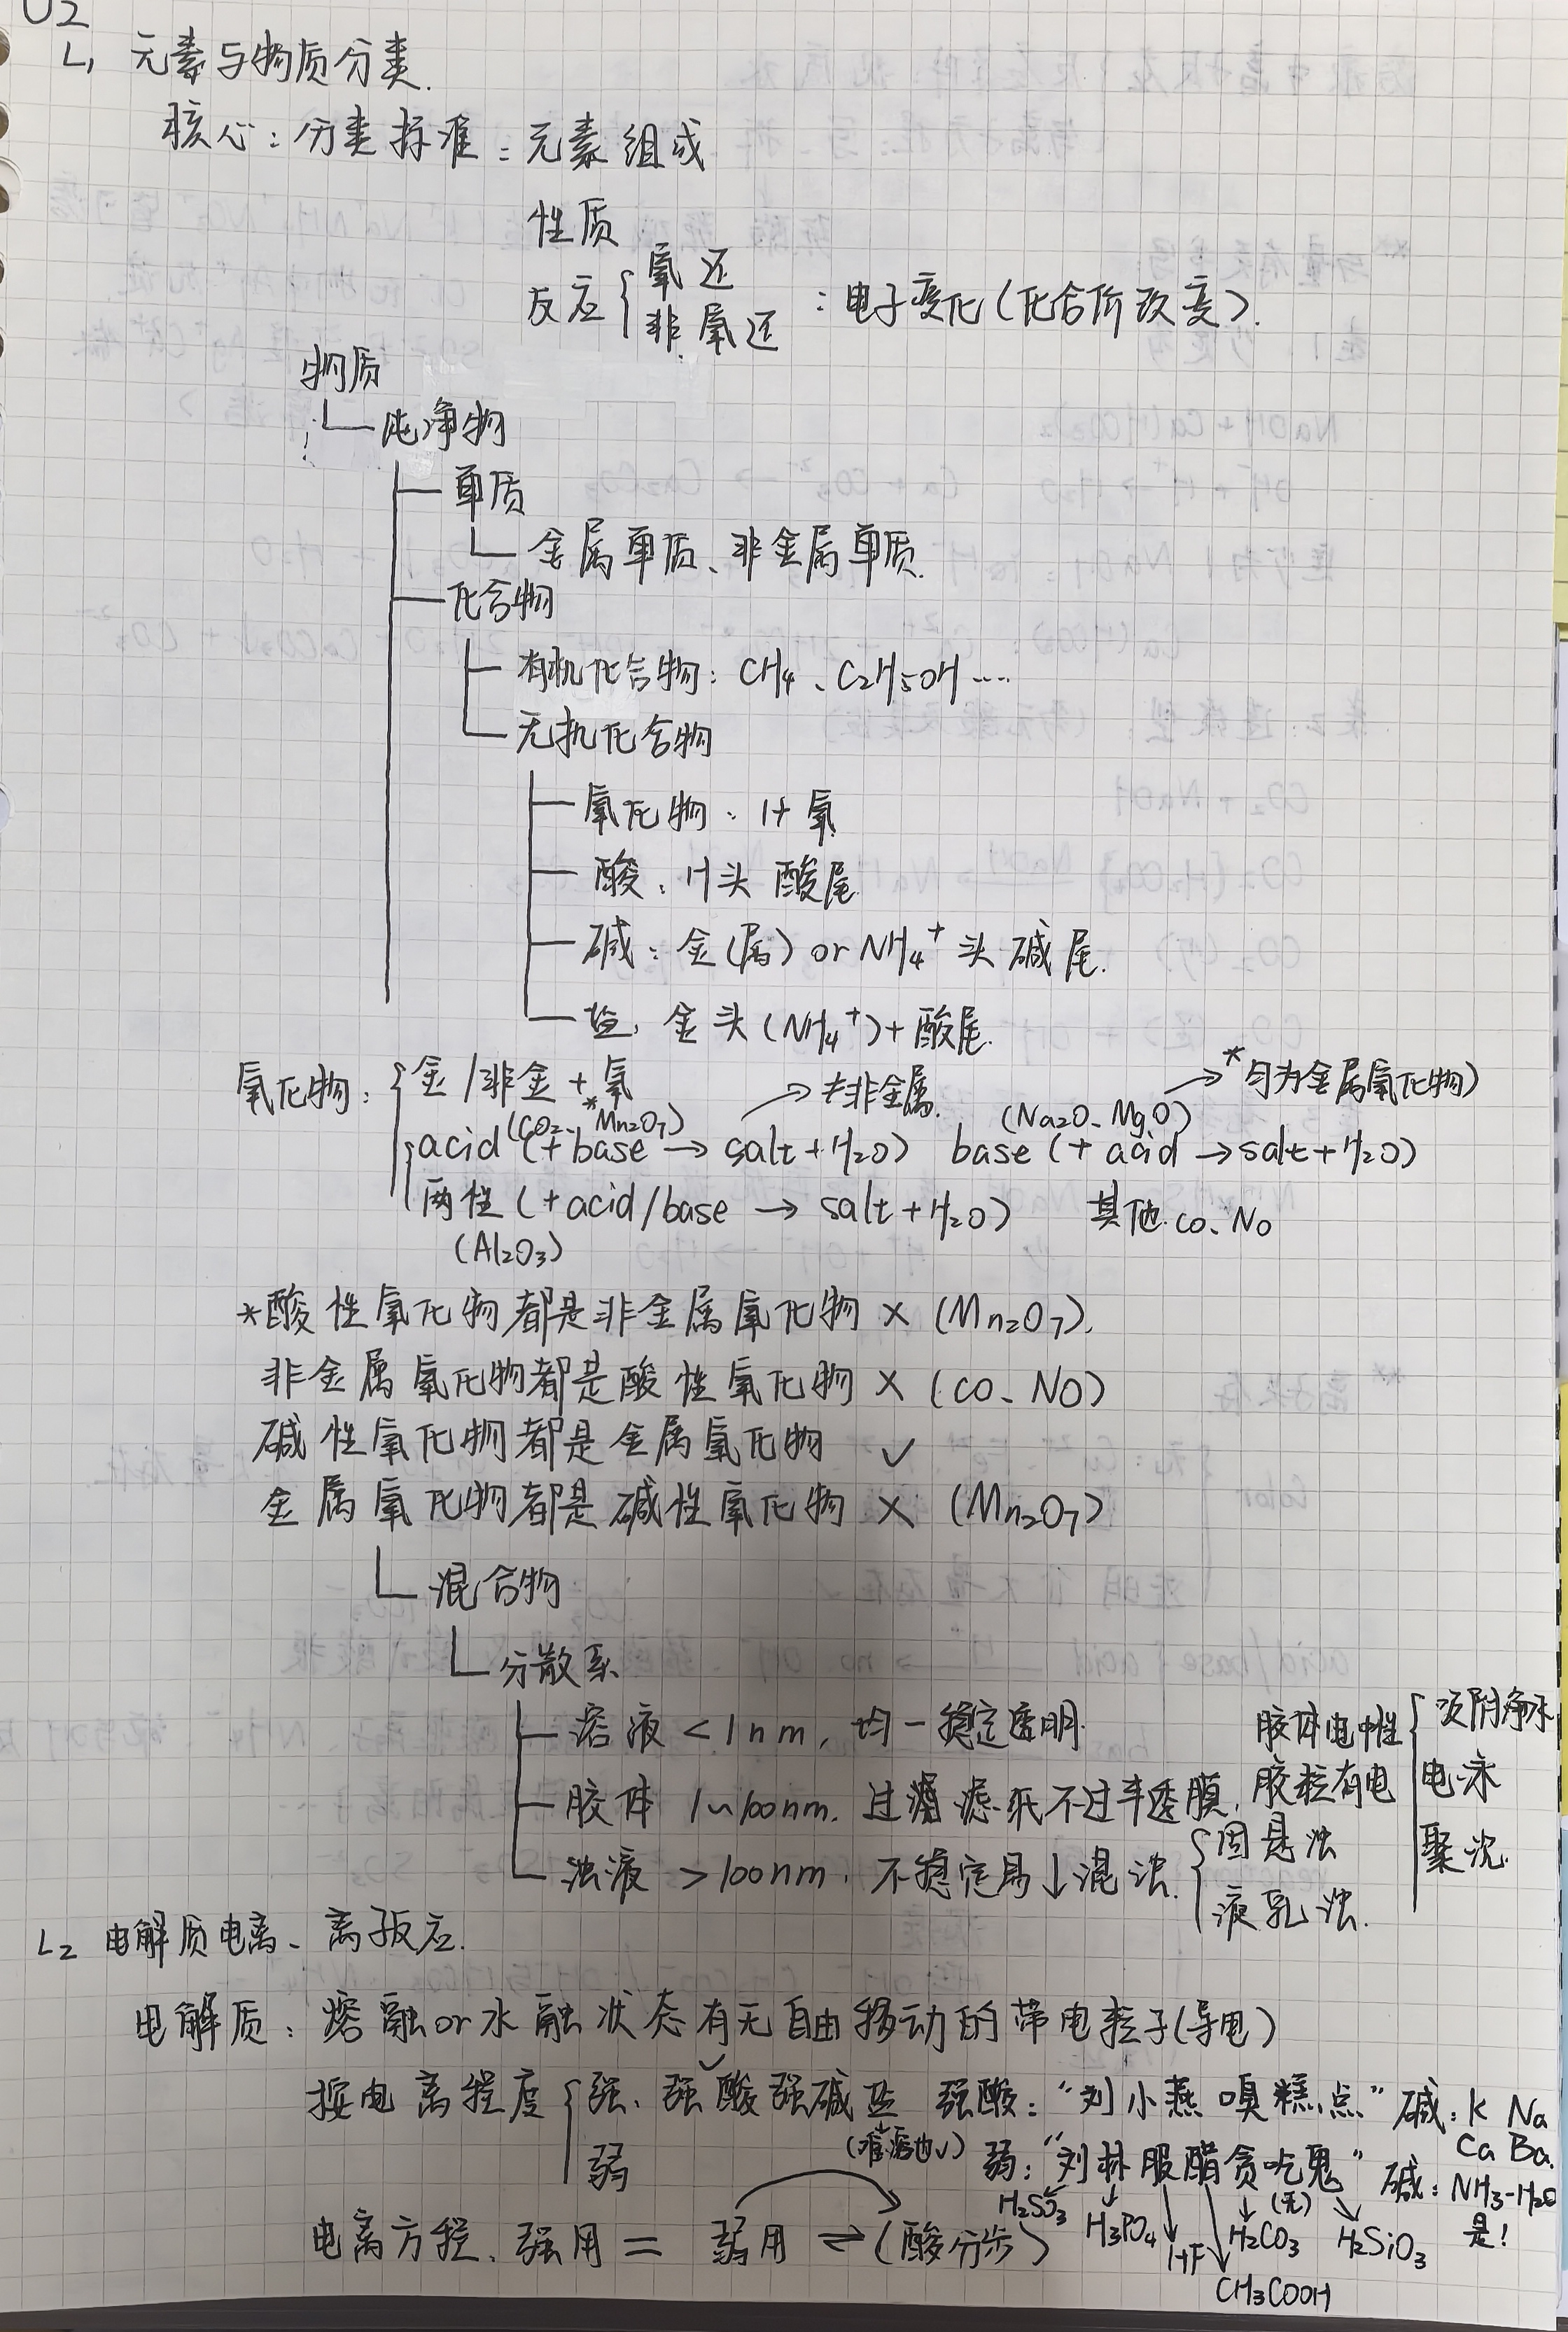 U2
L1 元素与物质分类.
核心:分类标准:元素组成
性质
反应{氧还
非氧还 :电子变化(化合价改变).
物质
纯净物
单质
金属单质、非金属单质.
化合物
有机化合物:CH4、C2H5OH…
无机化合物
氧化物:1+氧
酸:H头酸尾
碱:金(属)or NH4+头碱尾.
盐:金头(NH4+)+酸尾.
氧化物:{金/非金+氧 →≠非金属. →*匀为金属氧化物)
(CO2、*Mn2O7) (Na2O、MgO)
acid(+base→salt+H2O) base(+acid→salt+H2O)
两性(+acid/base→salt+H2O) 其他.CO、NO
(Al2O3)
*酸性氧化物都是非金属氧化物×(Mn2O7),
非金属氧化物都是酸性氧化物×(CO、NO)
碱性氧化物都是金属氧化物 ✓
金属氧化物都是碱性氧化物×(Mn2O7)
混合物
分散系
溶液<1nm,均一稳定透明.
胶体 1~100nm.过滤纸不过半透膜,
浊液>100nm.不稳定易↓混浊.{固悬浊
液乳浊.
胶体电中性
胶粒有电{吸附净水
电泳
聚沉.
L2 电解质电离、离子反应.
电解质:熔融or水融状态有无自由移动的带电粒子(导电)
按电离程度{强、强酸强碱盐 强酸:“刘小燕嗅糕点” 碱:K Na
Ca Ba.
(难溶也✓)
弱 弱:“刘林服醋贪吃鬼” 碱:NH3-H2O
是!
(无)
H2SO3 H3PO4 HF CH3COOH H2CO3 H2SiO3
电离方程.强用= 弱用⇌(酸分步)